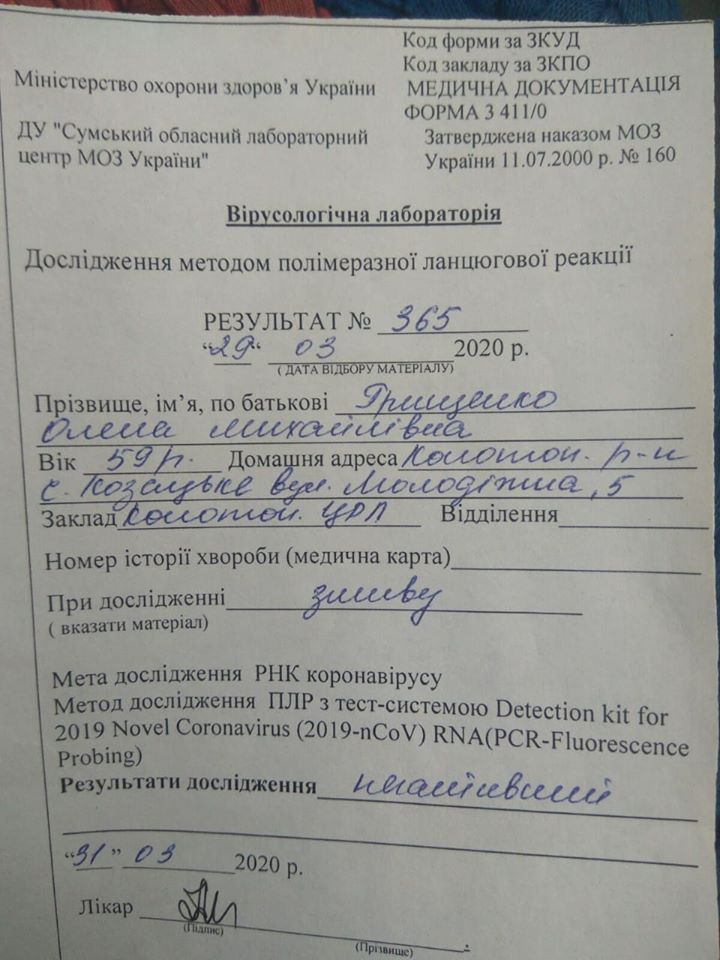 Код форми за ЗКУД
Код закладу за ЗКПО
Міністерство охорони здоров’я України
МЕДИЧНА ДОКУМЕНТАЦІЯ
ФОРМА 3 411/0
ДУ "Сумський обласний лабораторний
центр МОЗ України"
Затверджена наказом МОЗ
України 11.07.2000 р. № 160
Вірусологічна лабораторія
Дослідження методом полімеразної ланцюгової реакції
РЕЗУЛЬТАТ № 365
“29“ 03 2020 р.
( ДАТА ВІДБОРУ МАТЕРІАЛУ)
Прізвище, ім’я, по батькові Грищенко
Олена Михайлівна
Вік 59 р. Домашня адреса Конотоп. р-н
с. Козацьке вул. Молодіжна, 5
Заклад Конотоп. ЦРЛ Відділення
Номер історії хвороби (медична карта)
При дослідженні змиву
( вказати матеріал)
Мета дослідження РНК коронавірусу
Метод дослідження ПЛР з тест-системою Detection kit for
2019 Novel Coronavirus (2019-nCoV) RNA(PCR-Fluorescence
Probing)
Результати дослідження негативний
“31” 03 2020 р.
Лікар
(Підпис)
(Прізвище)